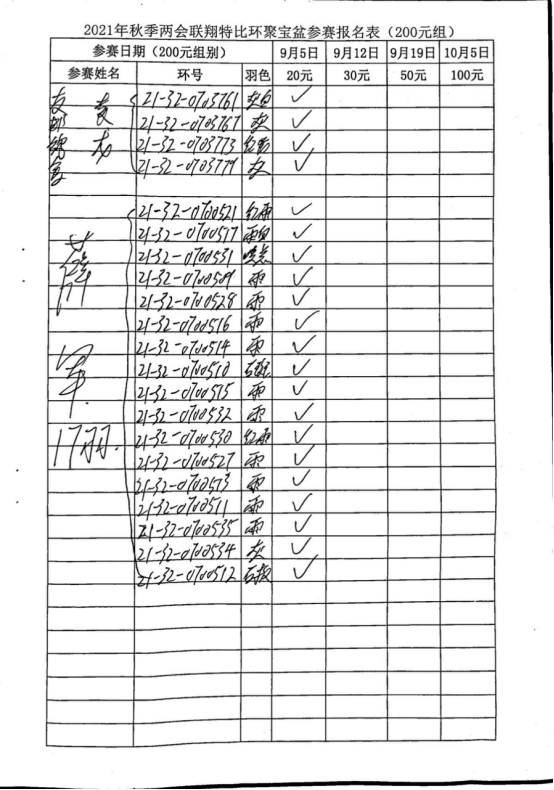 2021年秋季两会联翔特比环聚宝盆参赛报名表（200元组）
参赛日期（200元组别） 9月5日 9月12日 9月19日 10月5日
参赛姓名 环号 羽色 20元 30元 50元 100元
21-32-0703761 灰白 ✓
21-32-0703767 灰 ✓
21-32-0703773 ✓
21-32-0703779 灰 ✓
21-32-0700521 红雨 ✓
21-32-0700517 雨白 ✓
21-32-0700531 ✓
21-32-0700509 雨 ✓
21-32-0700528 雨 ✓
21-32-0700516 雨 ✓
21-32-0700514 雨 ✓
21-32-0700510 ✓
21-32-0700515 雨 ✓
21-32-0700532 雨 ✓
21-32-0700530 红雨 ✓
17羽.
21-32-0700527 雨 ✓
21-32-0700513 雨 ✓
21-32-0700511 雨 ✓
21-32-0700535 雨 ✓
21-32-0700534 灰 ✓
21-32-0700512 石板 ✓